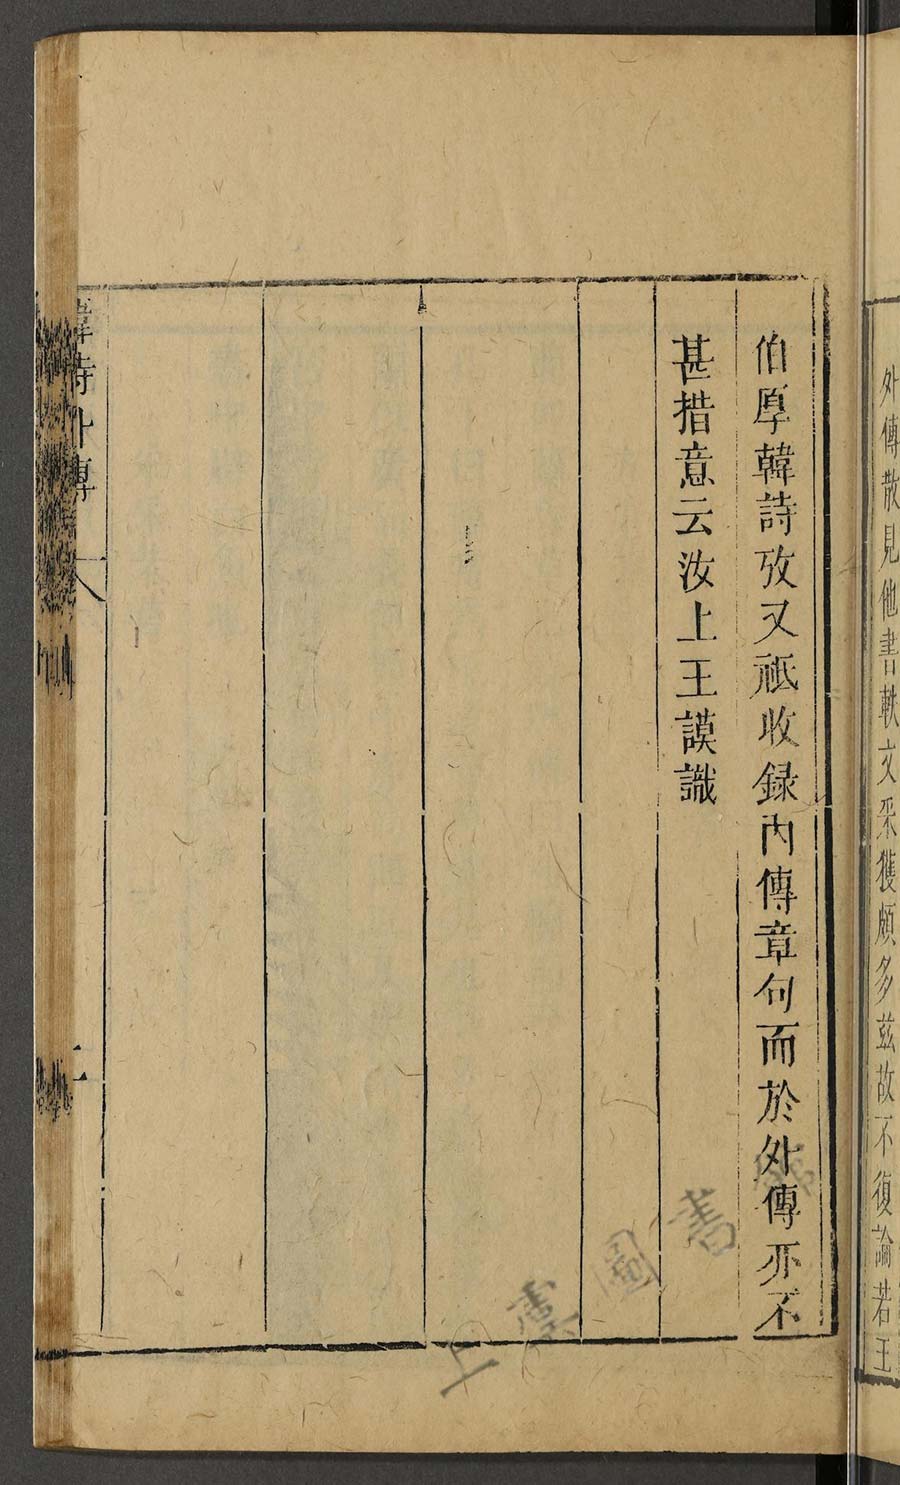 外傳散見他書軼文采獲頗多茲故不復論若王
伯厚韓詩攷又祗收録内傳章句而於外傳亦不
甚措意云汝上王謨識
韓詩外傳
二
上虞圖書館